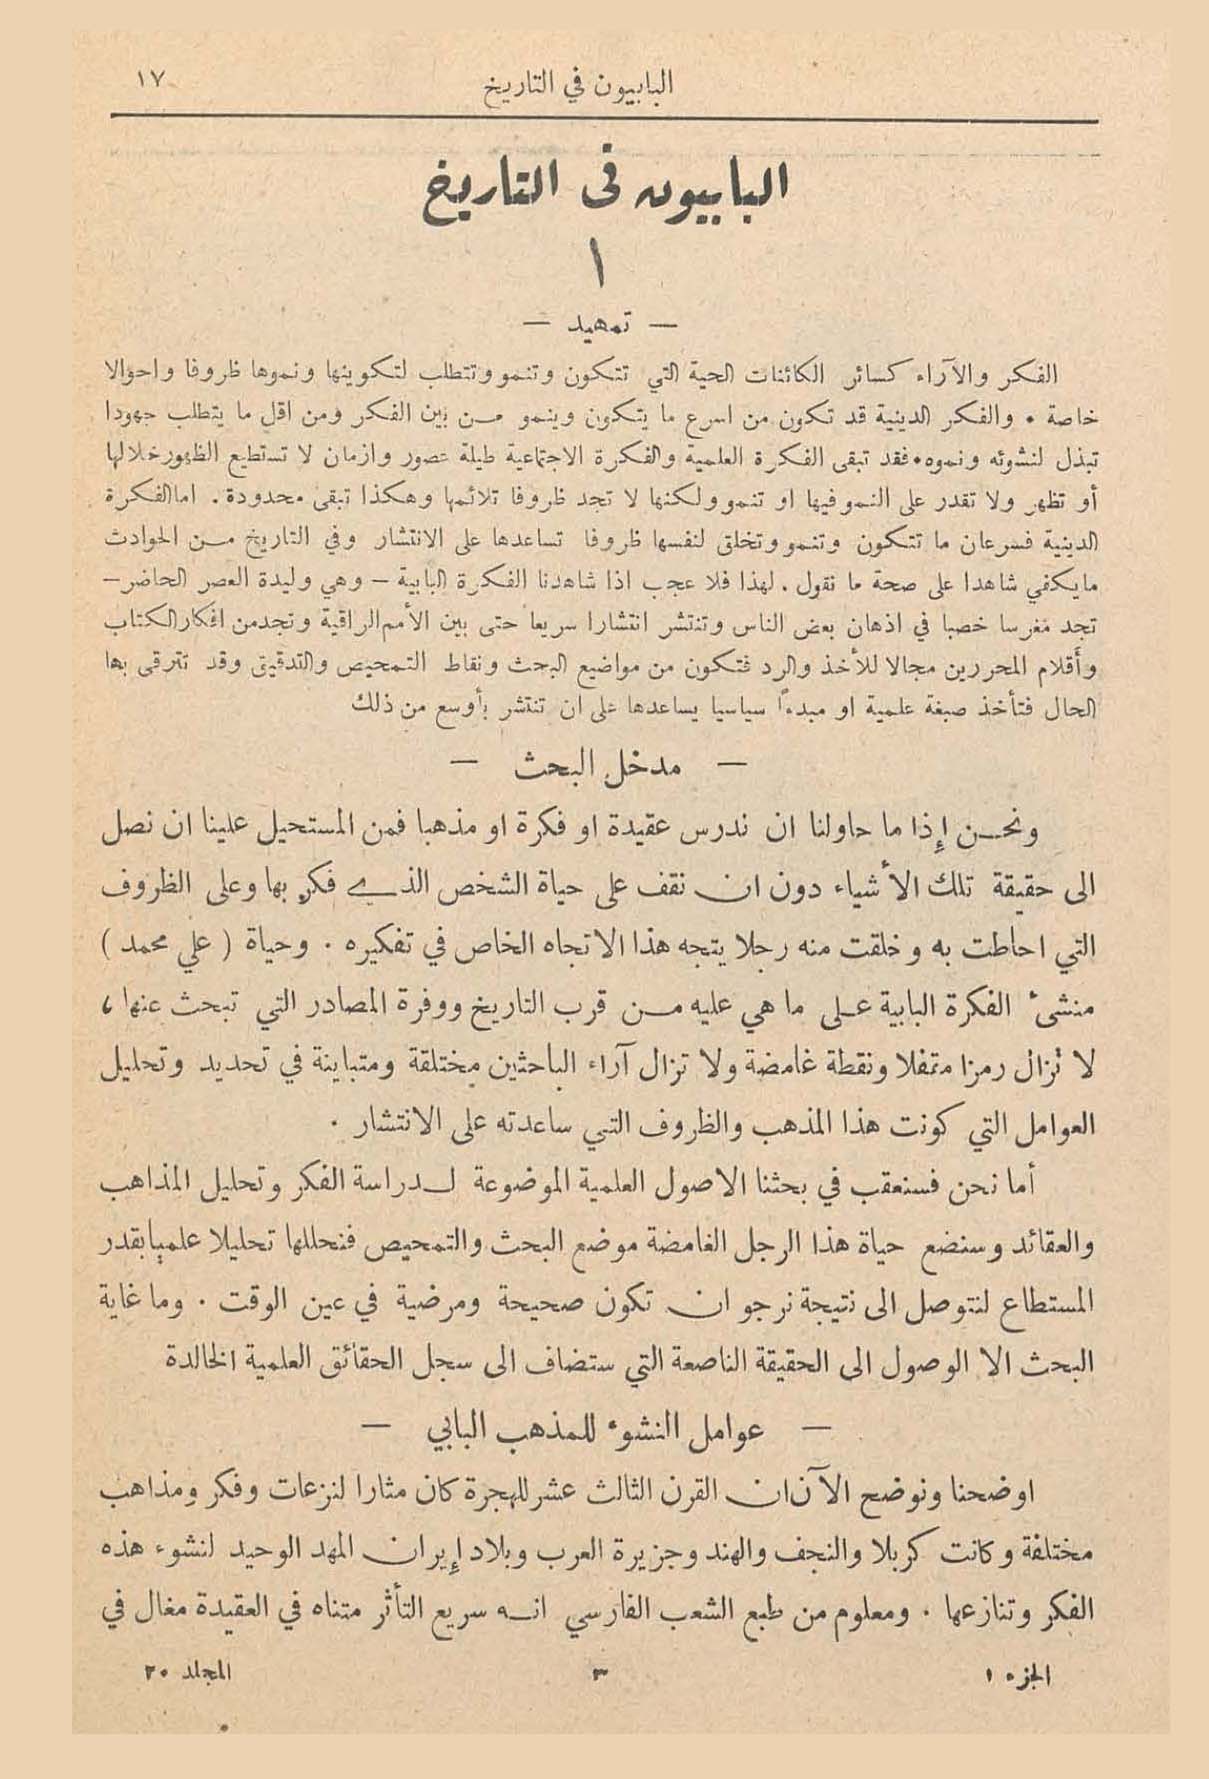 البابيون في التاريخ
١٧
البابيون في التاريخ
١
— تمهيد —
الفكر والآراء كسائر الكائنات الحية التي تتكون وتنمو وتتطلب لتكوينها ونموها ظروفا واحوالا
خاصة . والفكر الدينية قد تكون من اسرع ما يتكون وينمو من بين الفكر ومن اقل ما يتطلب جهودا
تبذل لنشوئه ونموه . فقد تبقى الفكرة العلمية والفكرة الاجتماعية طيلة عصور وازمان لا تستطيع الظهور خلالها
أو تظهر ولا تقدر على النمو فيها او تنمو ولكنها لا تجد ظروفا تلائمها وهكذا تبقى محدودة . اما الفكرة
الدينية فسرعان ما تتكون وتنمو وتخلق لنفسها ظروفا تساعدها على الانتشار وفي التاريخ من الحوادث
ما يكفي شاهدا على صحة ما نقول . لهذا فلا عجب اذا شاهدنا الفكرة البابية – وهي وليدة العصر الحاضر –
تجد مغرسا خصبا في اذهان بعض الناس وتنتشر انتشارا سريعا حتى بين الأمم الراقية وتجد من افكار الكتاب
وأقلام المحررين مجالا للأخذ والرد فتكون من مواضيع البحث ونقاط التمحيص والتدقيق وقد تترقى بها
الحال فتأخذ صبغة علمية او مبدءاً سياسيا يساعدها على ان تنتشر بأوسع من ذلك
— مدخل البحث —
ونحن إذا ما حاولنا ان ندرس عقيدة او فكرة او مذهبا فمن المستحيل علينا ان نصل
الى حقيقة تلك الأشياء دون ان نقف على حياة الشخص الذي فكر بها وعلى الظروف
التي احاطت به وخلقت منه رجلا يتجه هذا الاتجاه الخاص في تفكيره . وحياة ( علي محمد )
منشىء الفكرة البابية على ما هي عليه من قرب التاريخ ووفرة المصادر التي تبحث عنها ،
لا تزال رمزا مقفلا ونقطة غامضة ولا تزال آراء الباحثين مختلقة ومتباينة في تحديد وتحليل
العوامل التي كونت هذا المذهب والظروف التي ساعدته على الانتشار .
أما نحن فسنعقب في بحثنا الاصول العلمية الموضوعة لدراسة الفكر وتحليل المذاهب
والعقائد وسنضع حياة هذا الرجل الغامضة موضع البحث والتمحيص فنحللها تحليلا علميا بقدر
المستطاع لنتوصل الى نتيجة نرجو ان تكون صحيحة ومرضية في عين الوقت . وما غاية
البحث الا الوصول الى الحقيقة الناصعة التي ستضاف الى سجل الحقائق العلمية الخالدة
— عوامل النشوء للمذهب البابي —
اوضحنا ونوضح الآن ان القرن الثالث عشر للهجرة كان مثارا لنزعات وفكر ومذاهب
مختلفة وكانت كربلا والنجف والهند وجزيرة العرب وبلاد إيران المهد الوحيد لنشوء هذه
الفكر وتنازعها . ومعلوم من طبع الشعب الفارسي انه سريع التأثر متناه في العقيدة مغال في
الجزء ١
٣
المجلد ٢٠